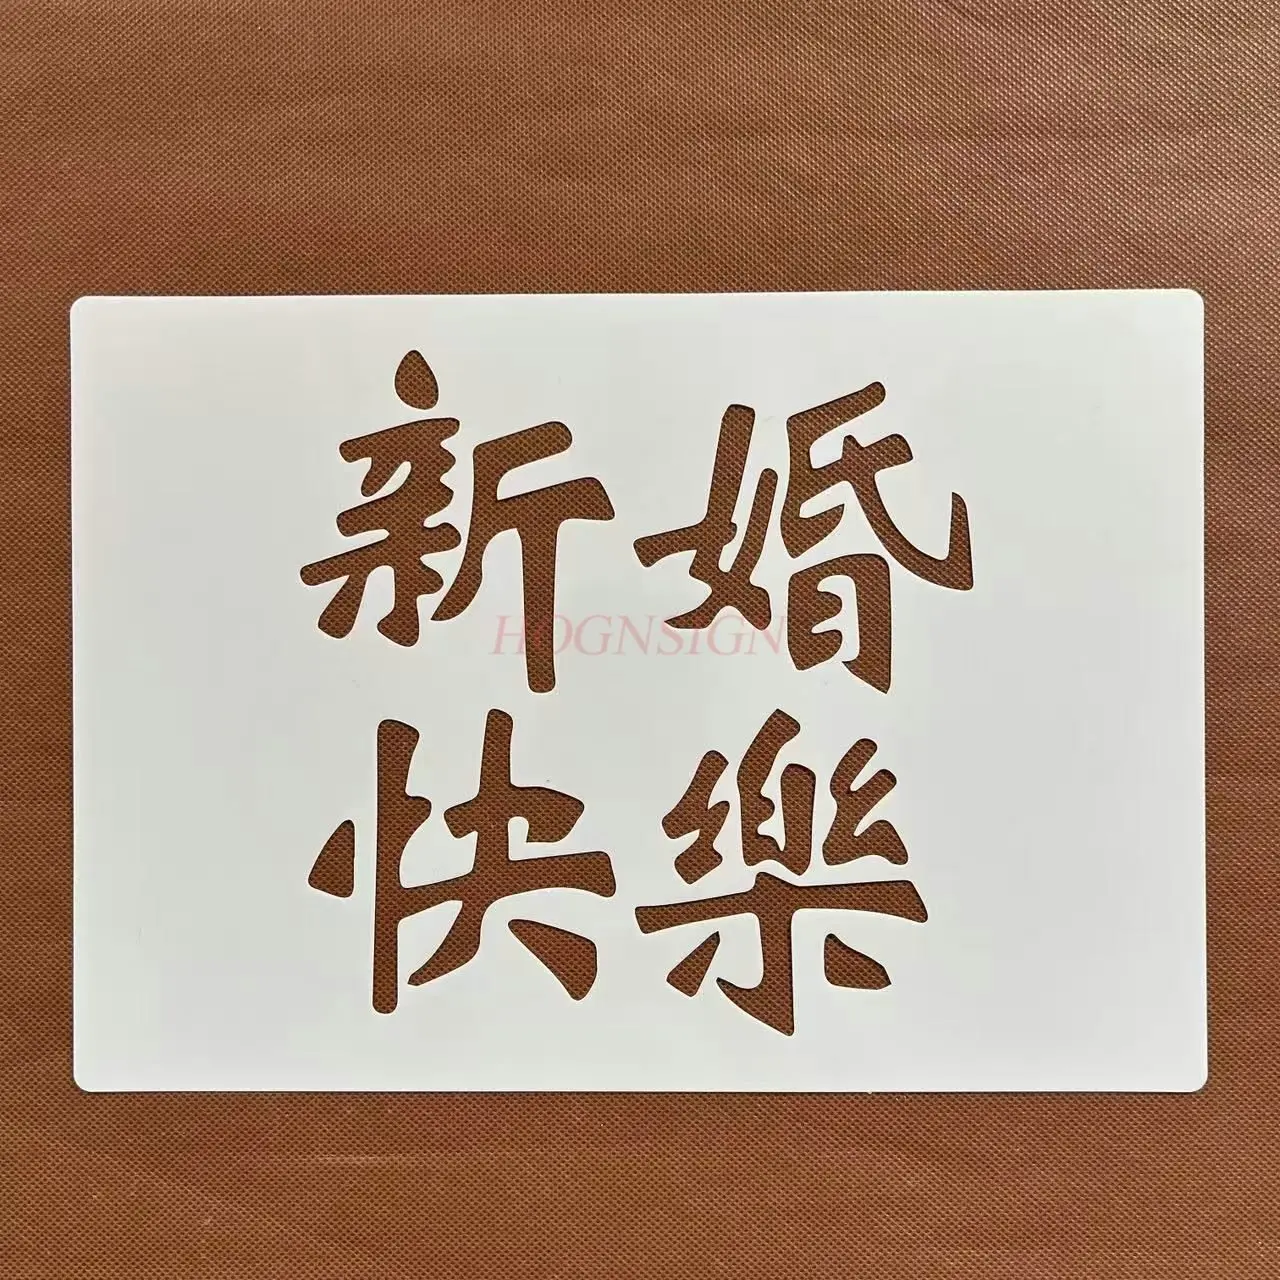 新婚
HOGNSIGN
快樂